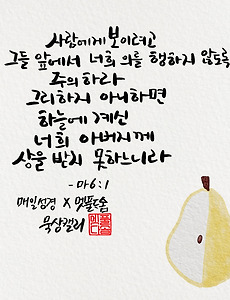 사람에게 보이려고
그들 앞에서 너희 의를 행하지 않도록
주의하라
그리하지 아니하면
하늘에 계신
너희 아버지께
상을 받지 못하느니라
-마6:1
매일성경 X
묵상캘리